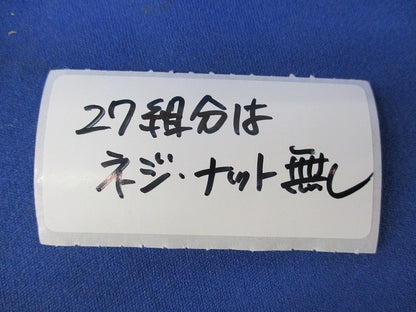 27組分は
ネジ・ナット無し